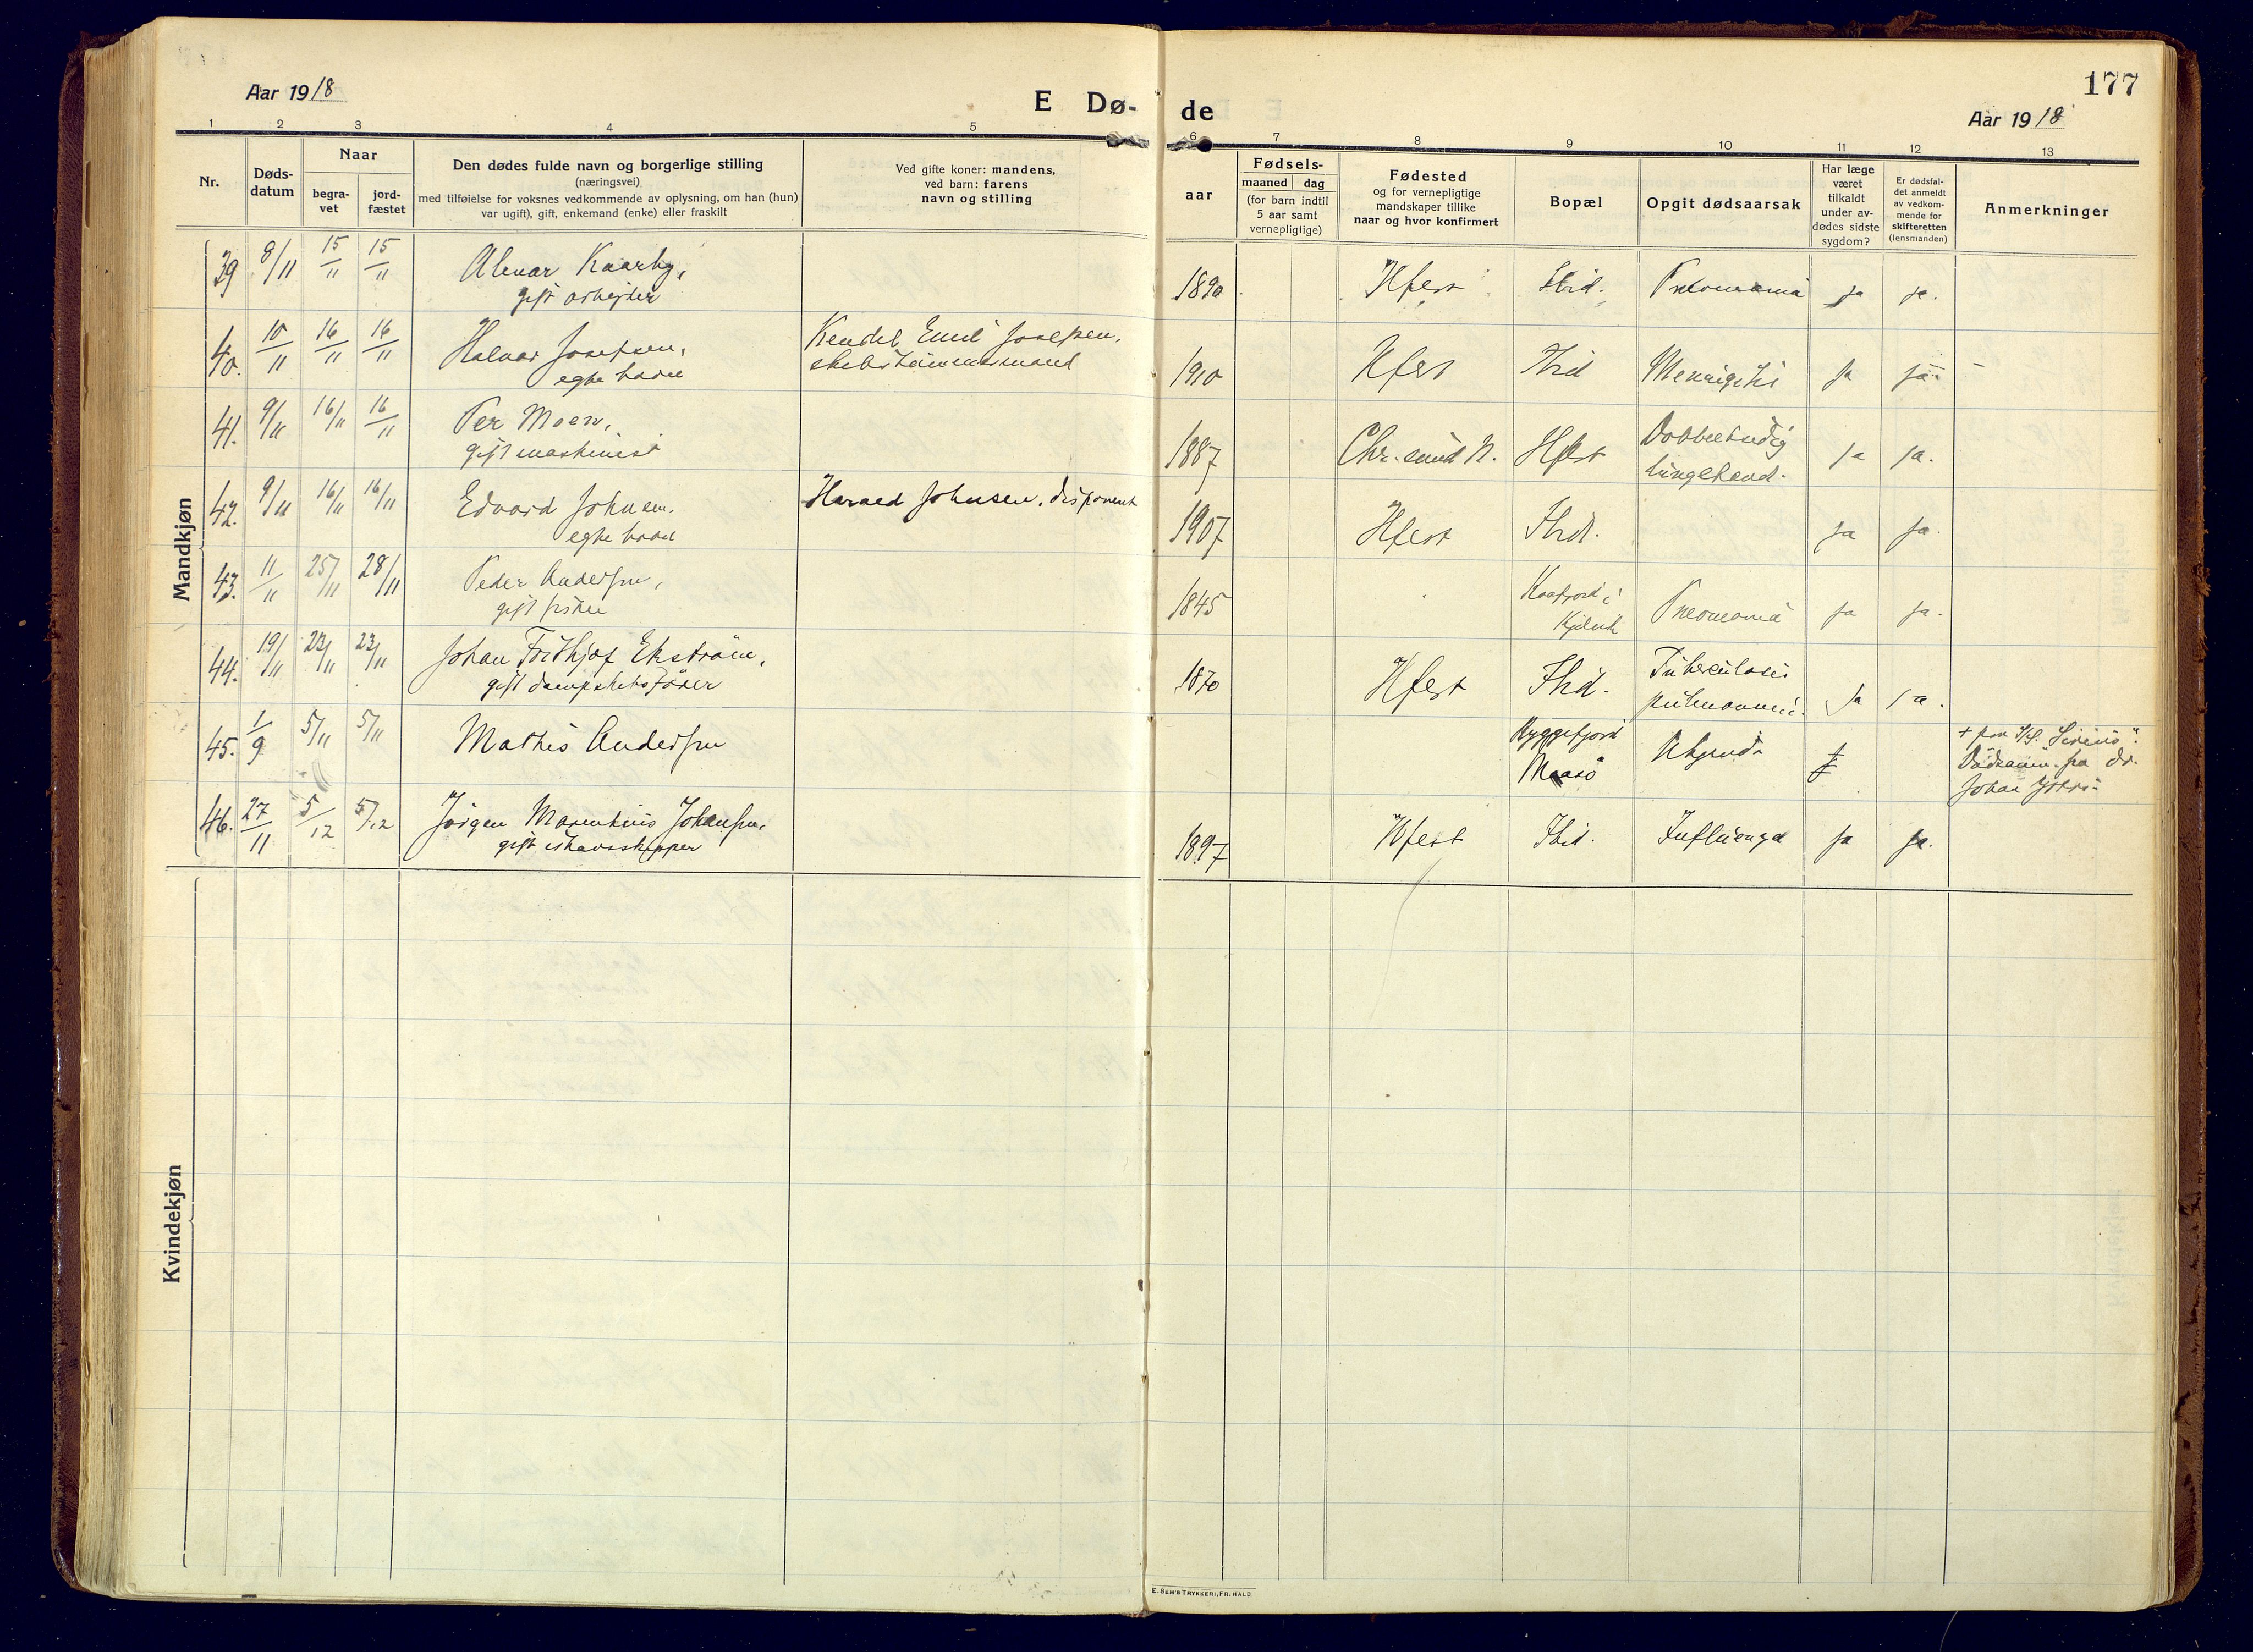 Aar 1918
E Dø-
1 2 3 4 5
Nr.
Døds-
datum
Naar
begra-
vet
jord-
fæstet
Den dødes fulde navn og borgerlige stilling
(næringsvei)
med tilføielse for voksnes vedkommende av oplysning, om han (hun)
var ugift), gift, enkemand (enke) eller fraskilt
Ved gifte koner: mandens,
ved barn: farens
navn og stilling
Mandkjøn
39 8/11 15/11 15/11
gift arbejder
40. 10/11 16/11 16/11 Halvar Josefsen,
egte barn
Emil Josefsen,
41. 9/11 16/11 16/11 Per Moen,
gift maskinist
42. 9/11 16/11 16/11 Edvard Johnsen.
egte barn
Harald Johnsen, disponent
43. 11/11 25/11 28/11 Peder Andersen,
gift fisker
44. 19/11 23/11 23/11 Johan Fridthjof Ekström,
gift dampskibsfører
45. 1/9 5/11 5/11 Mathis Andersen
46. 27/11 5/12 5/12 Jørgen Johansen,
gift ishavsskipper
Kvindekjøn
de
177
Aar 1918
6 7 8 9 10 11 12 13
aar
Fødsels-
maaned dag
(for barn indtil
5 aar samt
vernepligtige)
Fødested
og for vernepligtige
mandskaper tillike
naar og hvor konfirmert
Bopæl
Opgit dødsaarsak
Har læge
været
tilkaldt
under av-
dødes sidste
sygdom?
Er dødsfal-
det anmeldt
av vedkom-
mende for
skifteretten
(lensmanden)
Anmerkninger
1890 Hfest Ibid. ja ja.
1910 Hfest Ibid ja ja.
1887 Chr.sund N. Hfest Dobbeltsidig
ja ja.
1907 Hfest Ibid. ja ja.
1845 Kaafjord i
ja ja.
1870 Hfest Ibid. Tuberculosis
ja ja.
Maasø
+ paa S/S. "Sirius".
Johan
1897 Hfest Ibid. Influenza ja ja.
E. SEM'S TRYKKERI, FR.HALD